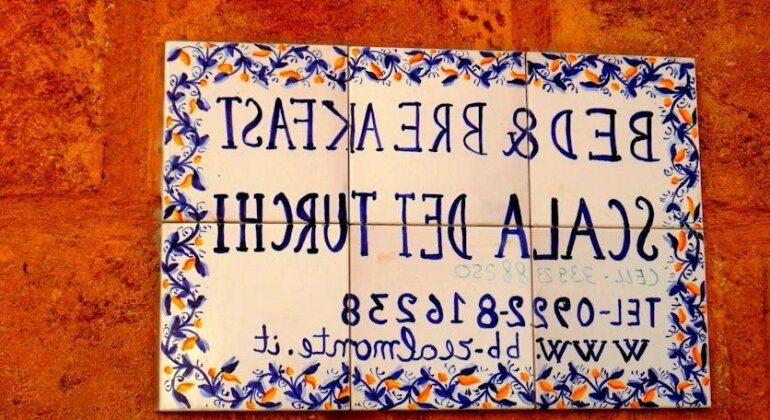 BED & BREAKFAST
SCALA DEI TURCHI
CELL-
TEL-0922-816238
www.bb-realmonte.it